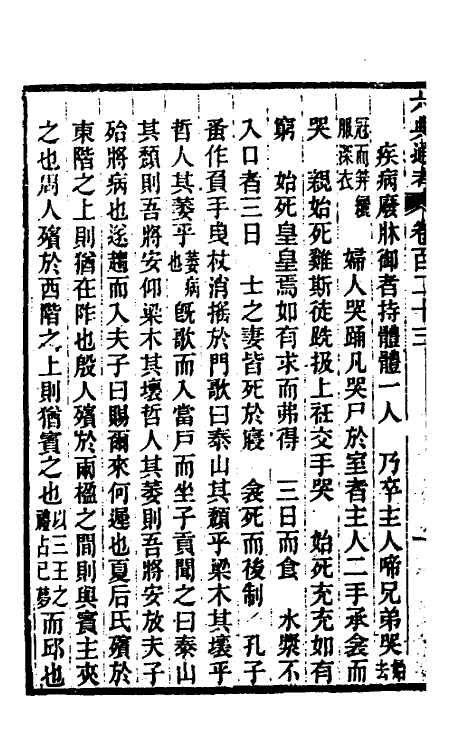 六典通考 卷百二十三
疾病廢牀御者持體體一人 乃卒主人啼兄弟哭始去
冠而笄纚服深衣 婦人哭踊凡哭尸於室者主人二手承衾而
哭 親始死雞斯徒跣扱上衽交手哭 始死充充如有
窮 始死皇皇焉如有求而弗得 三日而食 水漿不
入口者三日 士之妻皆死於寢 衾死而後制 孔子
蚤作負手曳杖消搖於門歌曰泰山其頹乎梁木其壞乎
哲人其萎乎萎病也既歌而入當戶而坐子貢聞之曰泰山
其頹則吾將安仰梁木其壞哲人其萎則吾將安放夫子
殆將病也遂趨而入夫子曰賜爾來何遲也夏后氏殯於
東階之上則猶在阼也殷人殯於兩楹之間則與賓主夾
之也周人殯於西階之上則猶賓之也以三王之禮占己夢而邱也